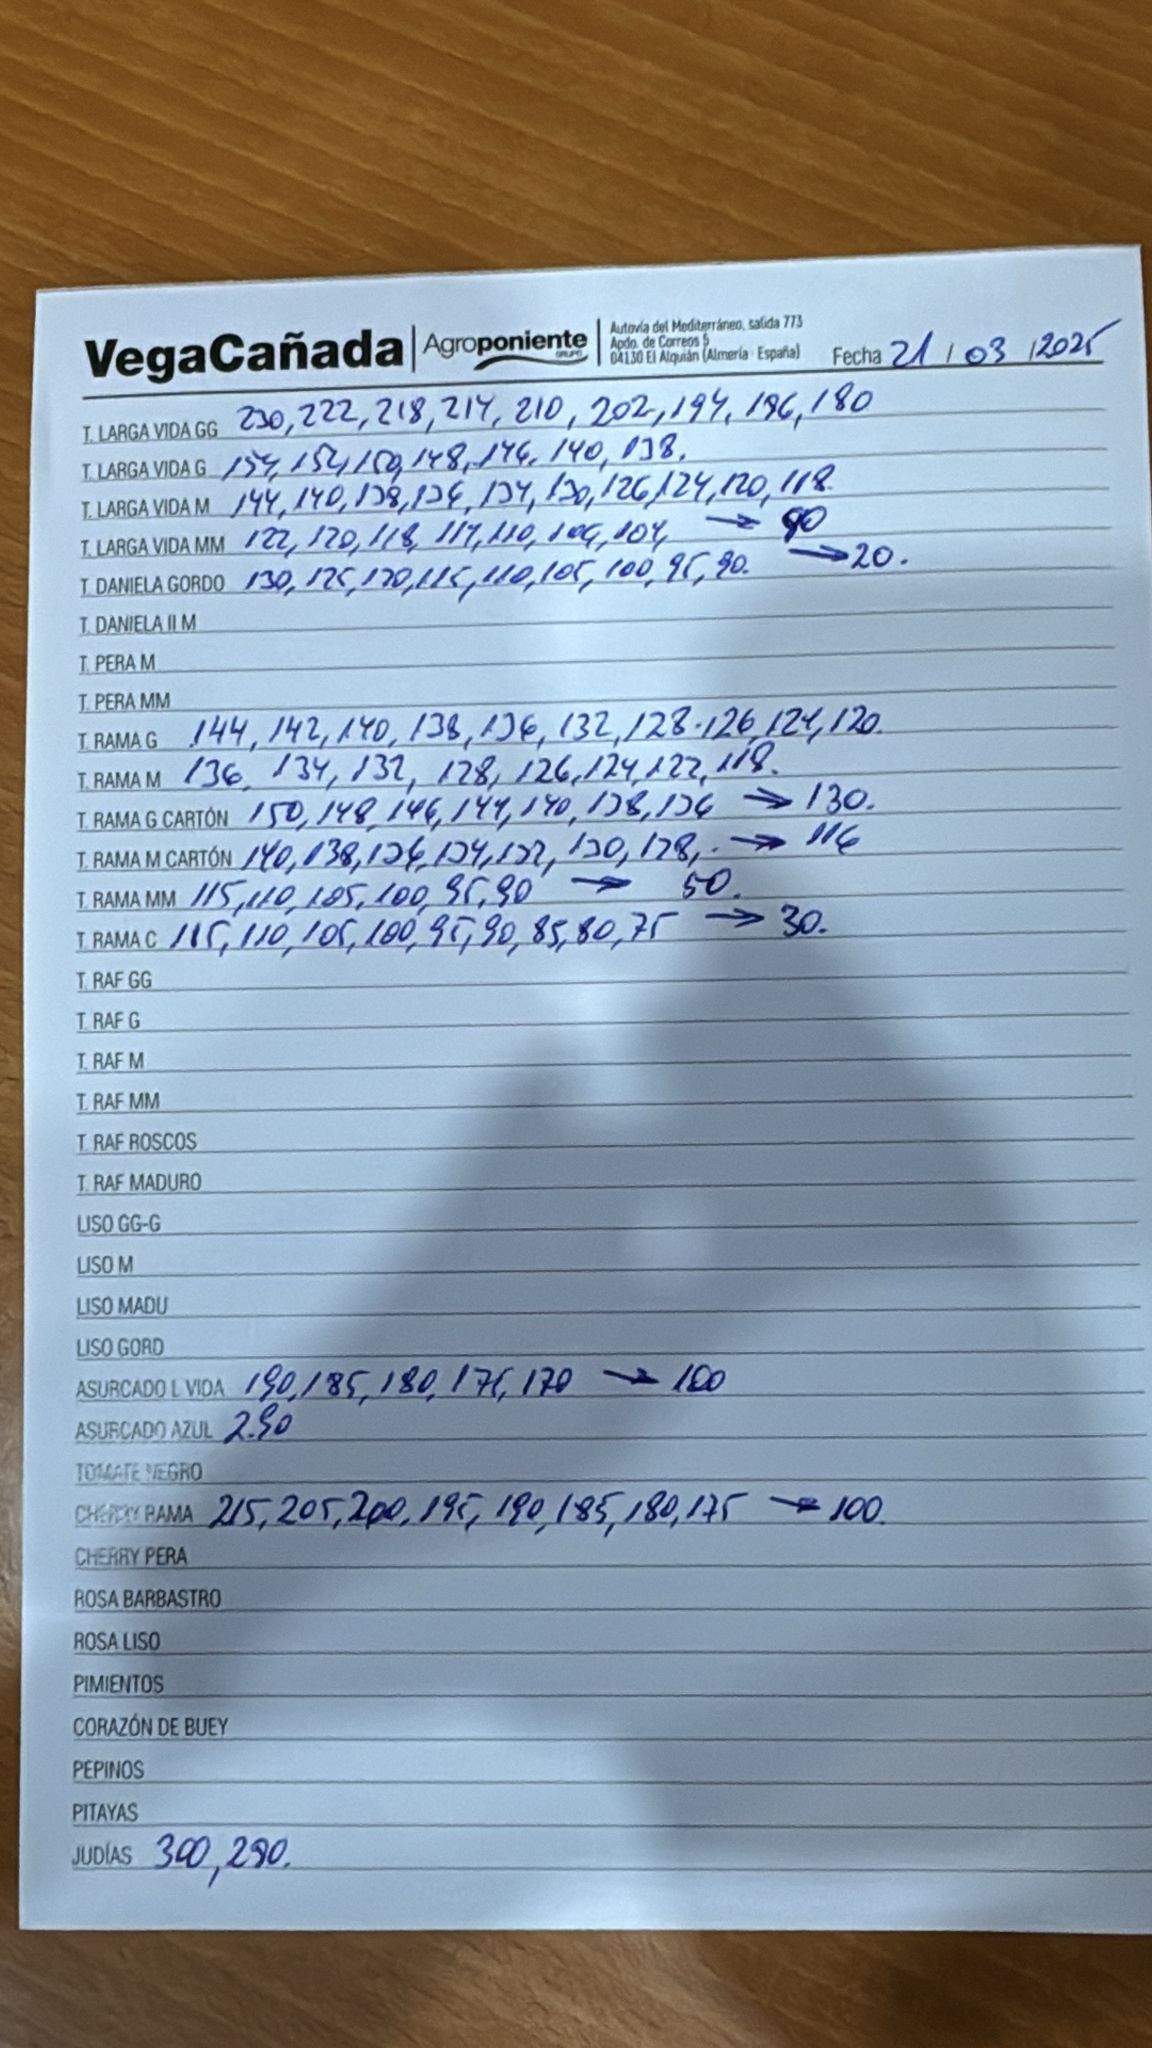 VegaCañada | Agroponiente GRUPO | Autovía del Mediterráneo, salida 773
Apdo. de Correos 5
04130 El Alquián (Almería - España)
Fecha 21 / 03 / 2025
T. LARGA VIDA GG 230, 222, 218, 214, 210, 202, 194, 186, 180
T. LARGA VIDA G 154, 152, 150, 148, 146, 140, 138.
T. LARGA VIDA M 144, 140, 138, 136, 134, 130, 126, 124, 120, 118.
T. LARGA VIDA MM 122, 120, 118, 114, 110, 106, 104, → 90
T. DANIELA GORDO 130, 125, 120, 115, 110, 105, 100, 95, 90. → 20.
T. DANIELA II M
T. PERA M
T. PERA MM
T. RAMA G 144, 142, 140, 138, 136, 132, 128. 126, 124, 120.
T. RAMA M 136, 134, 132, 128, 126, 124, 122, 118.
T. RAMA G CARTÓN 150, 148, 146, 144, 140, 138, 136 → 130.
T. RAMA M CARTÓN 140, 138, 136, 134, 132, 130, 128, . → 116
T. RAMA MM 115, 110, 105, 100, 95, 90 → 50.
T. RAMA C 115, 110, 105, 100, 95, 90, 85, 80, 75 → 30.
T. RAF GG
T. RAF G
T. RAF M
T. RAF MM
T. RAF ROSCOS
T. RAF MADURO
LISO GG-G
LISO M
LISO MADU
LISO GORD
ASURCADO L VIDA 190, 185, 180, 175, 170 → 100
ASURCADO AZUL 2.90
TOMATE NEGRO
CHERRY RAMA 215, 205, 200, 195, 190, 185, 180, 175 → 100.
CHERRY PERA
ROSA BARBASTRO
ROSA LISO
PIMIENTOS
CORAZÓN DE BUEY
PEPINOS
PITAYAS
JUDÍAS 300, 290.